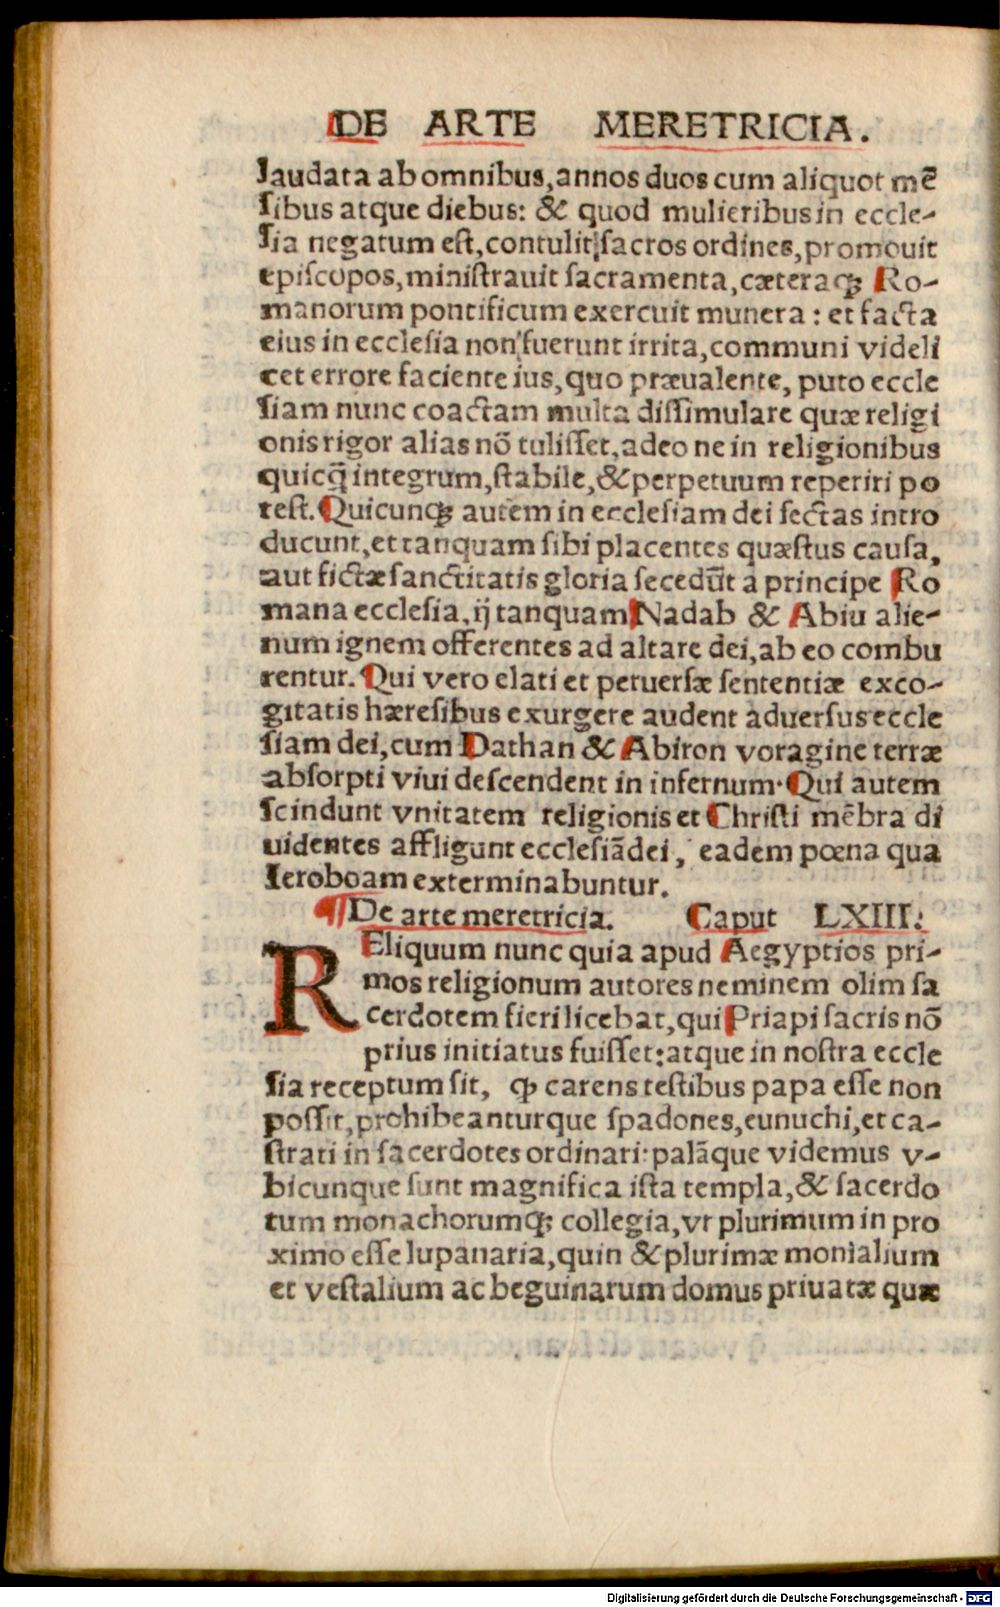 DE ARTE MERETRICIA.
laudata ab omnibus, annos duos cum aliquot mẽ
ſibus atque diebus: & quod mulieribus in eccle-
ſia negatum eſt, contulit ſacros ordines, promouit
epiſcopos, miniſtrauit ſacramenta, cæteraqꝫ Ro-
manorum pontificum exercuit munera : et facta
eius in eccleſia non fuerunt irrita, communi videli
cet errore faciente ius, quo præualente, puto eccle
ſiam nunc coactam multa diſſimulare quæ religi
onis rigor alias nõ tuliſſet, adeo ne in religionibus
quicq̃ integrum, ſtabile, & perpetuum reperiri po
teſt. Quicunqꝫ autem in eccleſiam dei ſectas intro
ducunt, et tanquam ſibi placentes quæſtus cauſa,
aut fictæ ſanctitatis gloria ſecedũt a principe Ro
mana eccleſia, ij tanquam Nadab & Abiu alie-
num ignem offerentes ad altare dei, ab eo combu
rentur. Qui vero elati et peruerſæ ſententiæ exco-
gitatis hæreſibus exurgere audent aduerſus eccle
ſiam dei, cum Dathan & Abiron voragine terræ
abſorpti viui deſcendent in infernum. Qui autem
ſcindunt vnitatem religionis et Chriſti mẽbra di
uidentes affligunt eccleſiã dei, eadem pœna qua
Ieroboam exterminabuntur.
¶ De arte meretricia. Caput LXIII.
REliquum nunc quia apud Aegyptios pri-
mos religionum autores neminem olim ſa
cerdotem fieri licebat, qui Priapi ſacris nõ
prius initiatus fuiſſet: atque in noſtra eccle
ſia receptum ſit, ꝙ carens teſtibus papa eſſe non
poſſit, prohibeanturque ſpadones, eunuchi, et ca-
ſtrati in ſacerdotes ordinari: palãque videmus v-
bicunque ſunt magnifica iſta templa, & ſacerdo
tum monachorumqꝫ collegia, vt plurimum in pro
ximo eſſe lupanaria, quin & plurimæ monialium
et veſtalium ac beguinarum domus priuatæ quæ
Digitalisierung gefördert durch die Deutsche Forschungsgemeinschaft - DFG